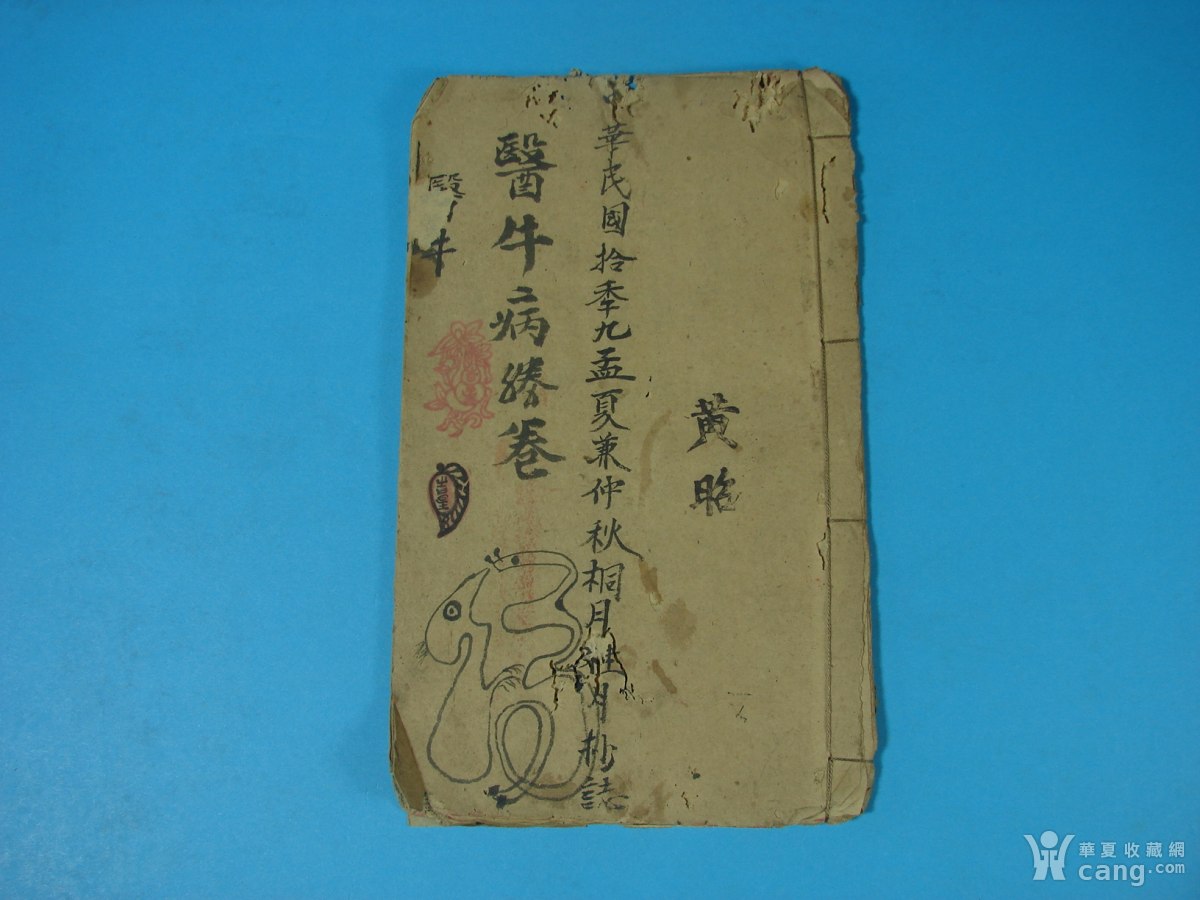 黄
中華民國拾季九孟夏兼仲秋桐月 月抄誌
醫牛病 卷
醫牛
華夏收藏網
cang.com